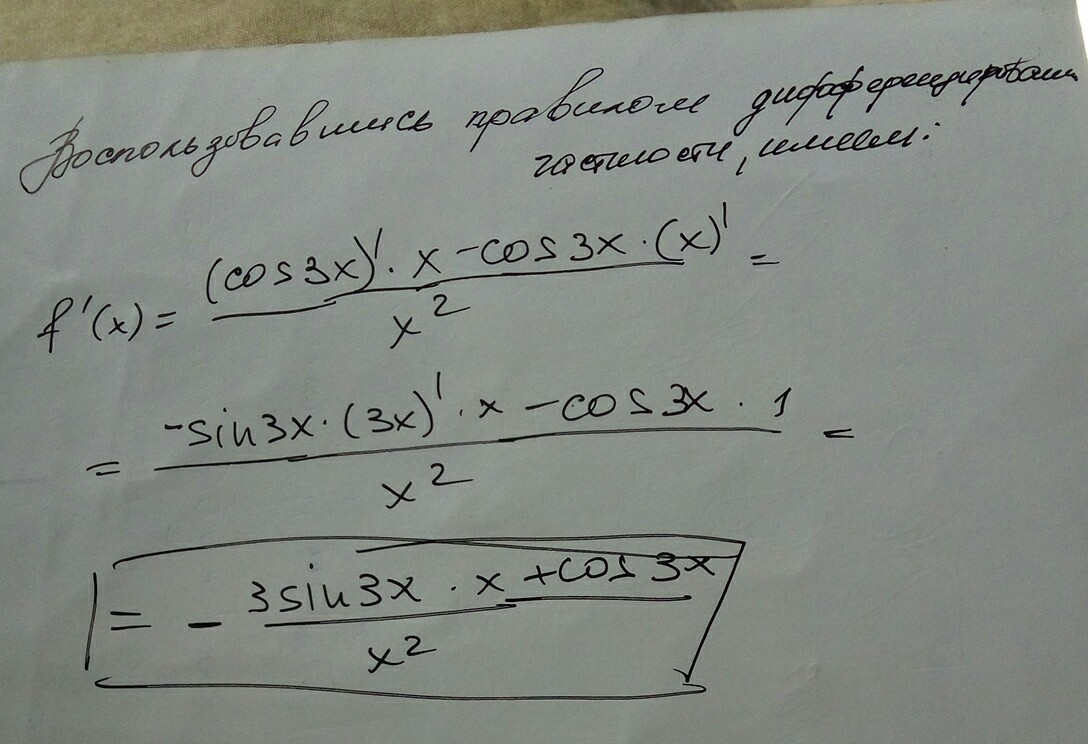 Воспользовавшись правилом дифференцировани
частности, имеем:
f'(x) = ((cos3x)' · x - cos3x · (x)') / x² =
= (-sin3x · (3x)' · x - cos3x · 1) / x² =
= - (3sin3x · x + cos3x) / x²